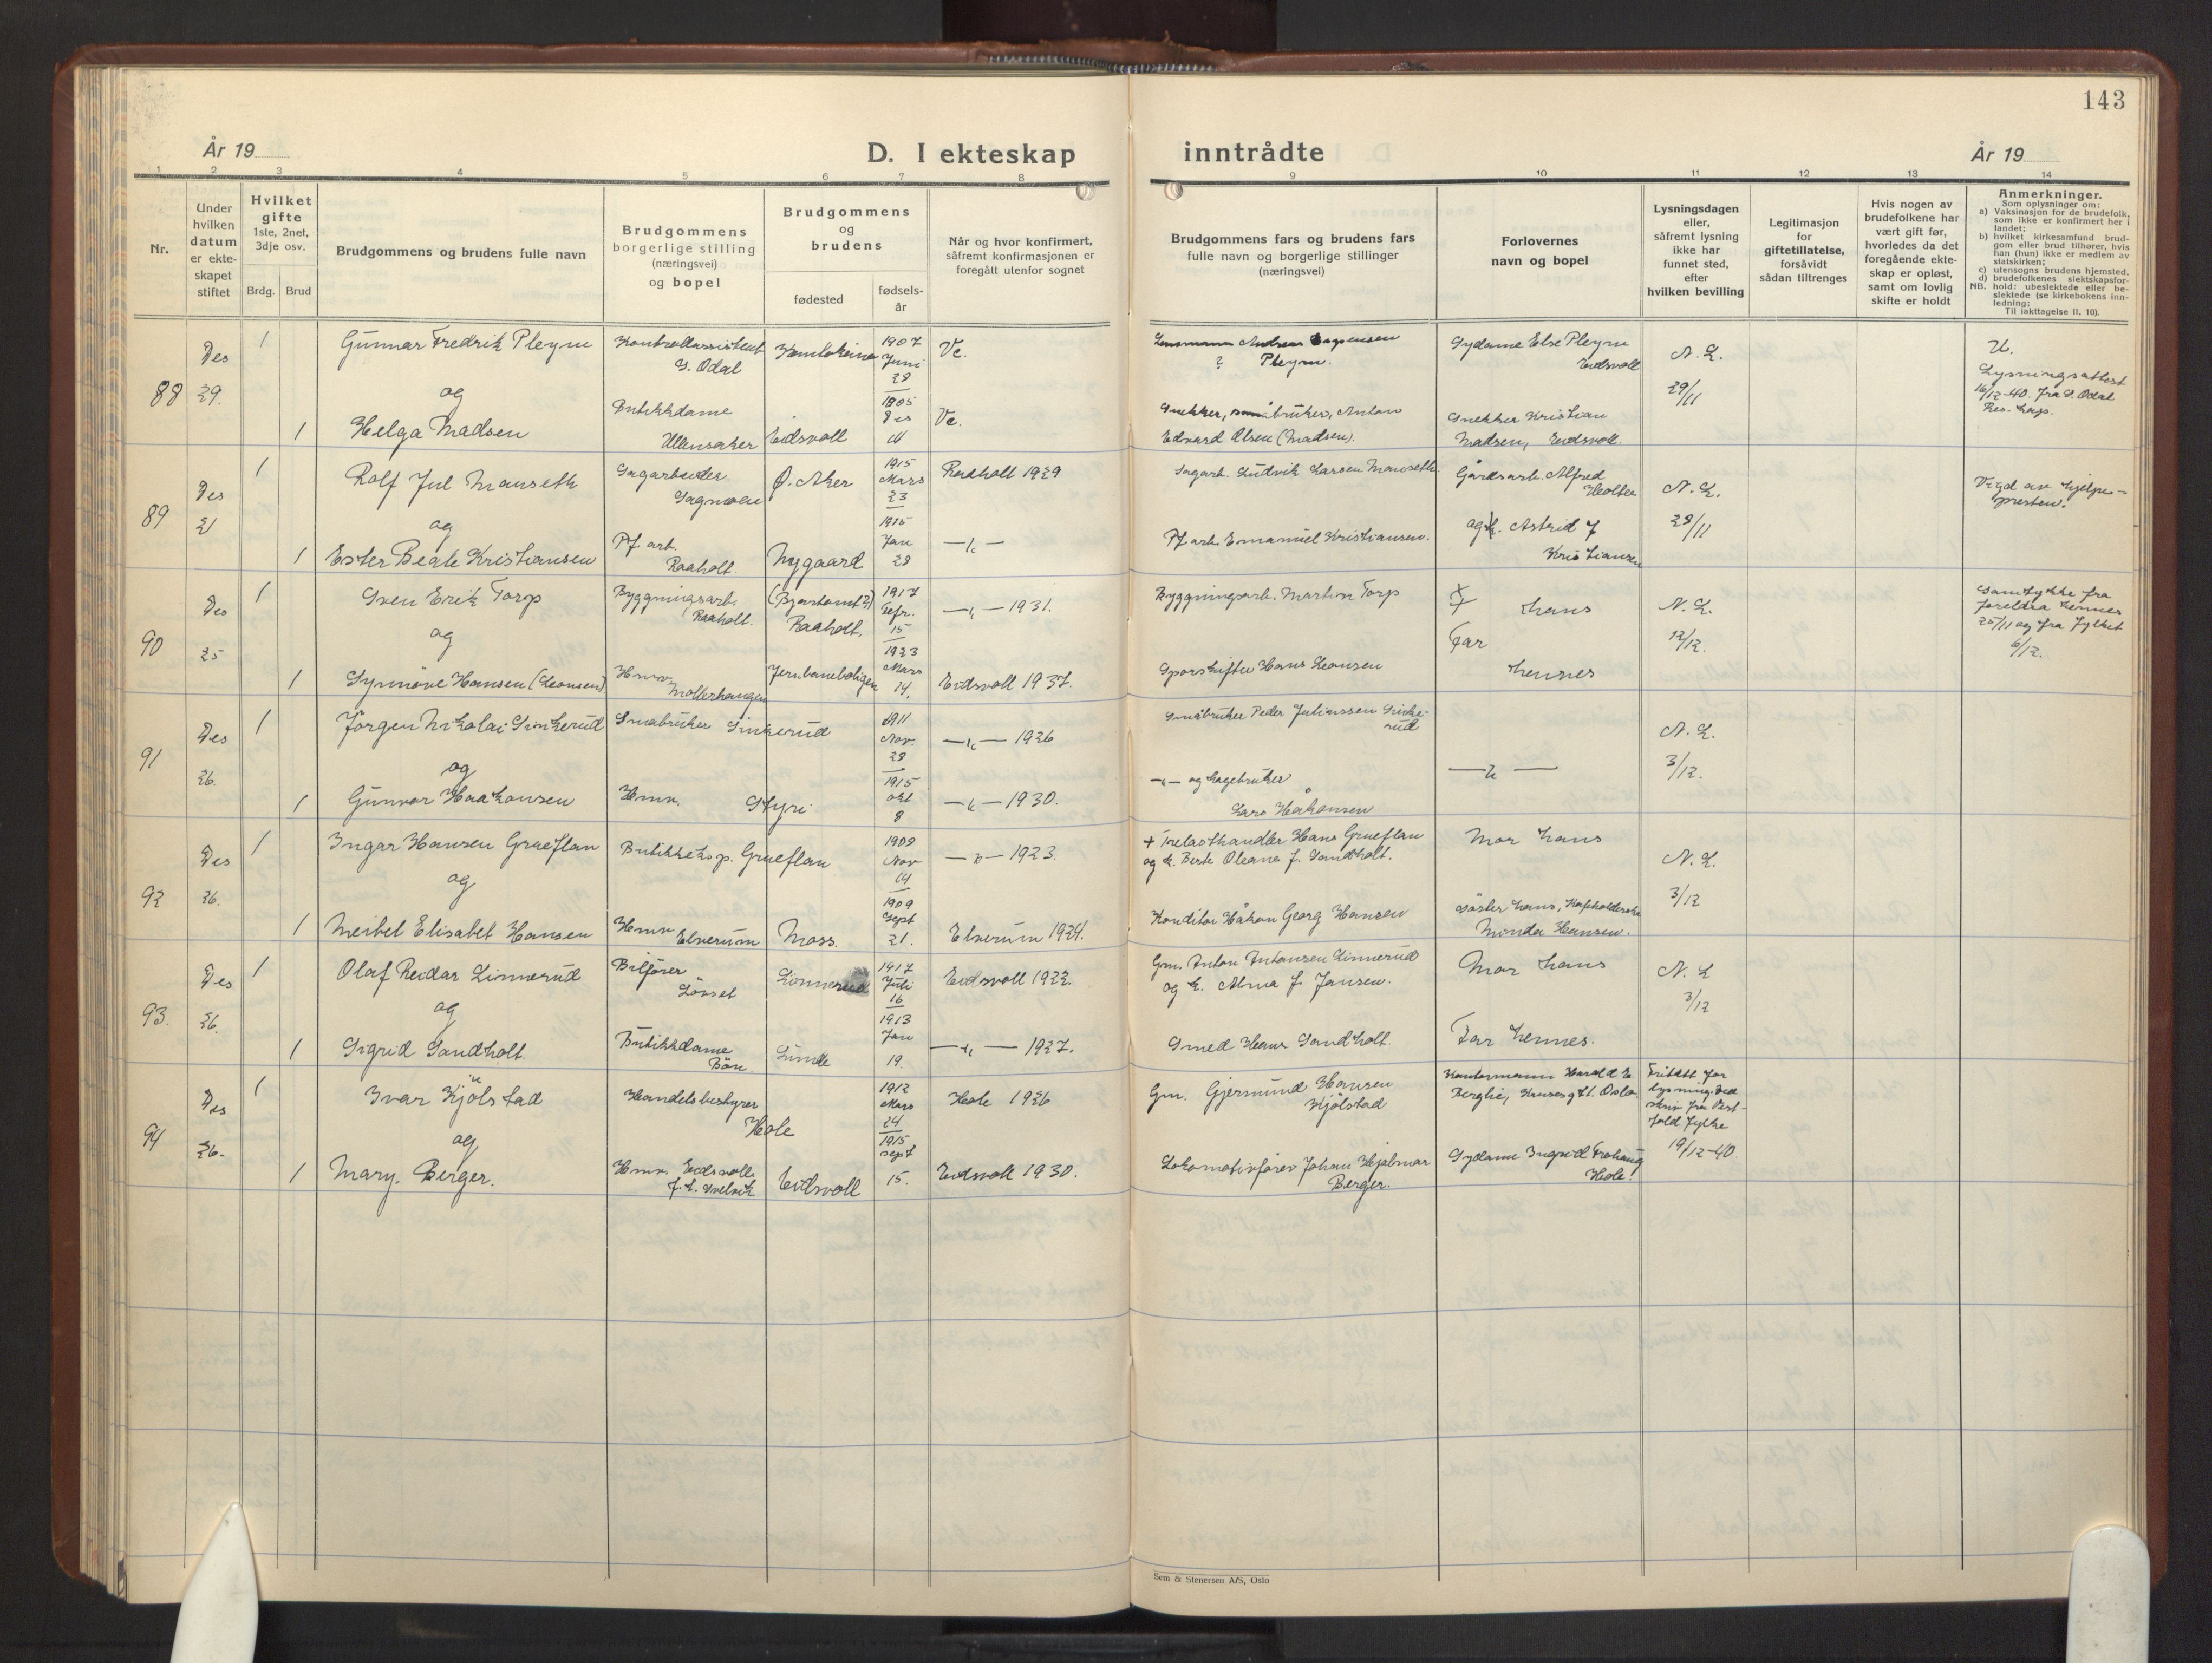 143
År 19
D. I ekteskap
inntrådte
År 19
1 2 3 4 5 6 7 8 9 10 11 12 13 14
Nr.
Under
hvilken
datum
er ekte-
skapet
stiftet
Hvilket
gifte
1ste, 2net,
3dje osv.
Brdg. Brud
Brudgommens og brudens fulle navn
Brudgommens
borgerlige stilling
(næringsvei)
og bopel
Brudgommens
og
brudens
fødested
fødsels-
år
Når og hvor konfirmert,
såfremt konfirmasjonen er
foregått utenfor sognet
Brudgommens fars og brudens fars
fulle navn og borgerlige stillinger
(næringsvei)
Forlovernes
navn og bopel
Lysningsdagen
eller,
såfremt lysning
ikke har
funnet sted,
efter
hvilken bevilling
Legitimasjon
for
giftetillatelse,
forsåvidt
sådan tiltrenges
Hvis nogen av
brudefolkene har
vært gift før,
hvorledes da det
foregående ekte-
skap er opløst,
samt om lovlig
skifte er holdt
Anmerkninger.
Som oplysninger om:
a) Vaksinasjon for de brudefolk,
som ikke er konfirmert her i
landet;
b) hvilket kirkesamfund brud-
gom eller brud tilhører, hvis
han (hun) ikke er medlem av
statskirken;
c) utensogns brudens hjemsted,
d) brudefolkenes slektskapsfor-
NB. hold: ubeslektede eller be-
slektede (se kirkebokens inn-
ledning;
Til iakttagelse II. 10).
88
Des
29.
1
Gunnar Fredrik Pleym
og
1
Helga Madsen
Kontrollassistent
S. Odal
Butikkdame
Ullensaker
Kautokeino
Eidsvoll
1907
Juni
28
1905
Des
Vc.
Vc.
Pleym
Snekker, småbruker, Anton
Edvard Olsen (Madsen).
Sydame Else Pleym
Eidsvoll
Snekker Kristian
Madsen, Eidsvoll
N. L.
29/11
U.
Lysningsattest
16/12-40. fra S. Odal
Res. kap.
89
Des
21
1
Rolf Jul Mauseth
og
1
Ester Beate Kristiansen
Sagarbeider
Sagmoen
Pf. arb.
Raaholt.
Ø. Aker
Nygaard
1915
Mars
23
1915
Jan
28
Raaholt 1929
—"—
Sagarb. Ludvik Larsen Mauseth.
Pf arb. Emanuel Kristiansen.
Gårdsarb. Alfred
Holter
og k. Astrid f
Kristiansen
N. L.
28/11
Vigd av hjelpe-
presten.
90
Des
25
1
Sven Erik Torp
og
1
Synnöve Hansen (Leonsen)
Byggningsarb.
Raaholt.
Hmv.
Mollerhaugen
Raaholt.
Jernbaneboligen
1917
Febr.
15
1923
Mars
14.
—"— 1931.
Eidsvoll 1937.
Byggningsarb. Martin Torp
Sporskifter Hans Leonsen
hans
Far
hennes
N. L.
12/12.
Samtykke fra
foreldra hennes
25/11 og fra fylket
6/12.
91
Des
26.
1
Jörgen Nikolai Sinkerud
og
1
Gunvor Haakonsen
Småbruker Sinkerud
Hmv. Styri
1911
Nov.
28
1915
okt
8
—"— 1926
—"— 1930.
Småbruker Peder Julianssen Sinke-
rud
—"— og hagebruker
Lars Håkonsen
—"—
N. L.
3/12.
92
Des
26.
1
Ingar Hansen Grueflan
og
1
Meibel Elisabet Hansen
Butikkeksp. Grueflan
Hmv
Elverum
Moss.
1908
Nov
14
1909
Sept
21.
—"— 1923.
Elverum 1924.
+ Trelasthandler Hans Grueflan
og k. Berte Oleana f. Sandholt.
Konditor Håkon Georg Hansen
Mor hans
Söster hans,
Minda Hansen.
N. L.
3/12
93.
Des
26.
1
Olaf Reidar Linnerud
og
1
Sigrid Sandholt.
Bilförer
Lösset
Butikkdame
Bön
Linnerud
Lunde
1917
Juli
16
1913
Jan
19.
Eidsvoll 1922.
—"— 1927.
Gm. Anton Antonsen Linnerud
og k. Alma f. Jansen.
Smed Hans Sandholt.
Mor hans
Far hennes.
N. L
3/12
94
Des
26.
1
Ivar Kjölstad
og
1
Mary. Berger.
Handelsbestyrer
Hole
Hmv. Eidsvoll
Eidsvoll
1912
Mars
24
1915
sept
15.
Hole 1926
Eidsvoll 1930.
Gm. Gjermund Hansen
Kjölstad
Lokomotivförer Johan Hjalmar
Berger.
Kontormann Harald E.
Berglie, Oslo
Sydame Ingrid Frohaug
Hole.
Fritatt for
lysning ved
skriv fra Vest-
fold fylke
19/12-40.
Sem & Stenersen A/S, Oslo